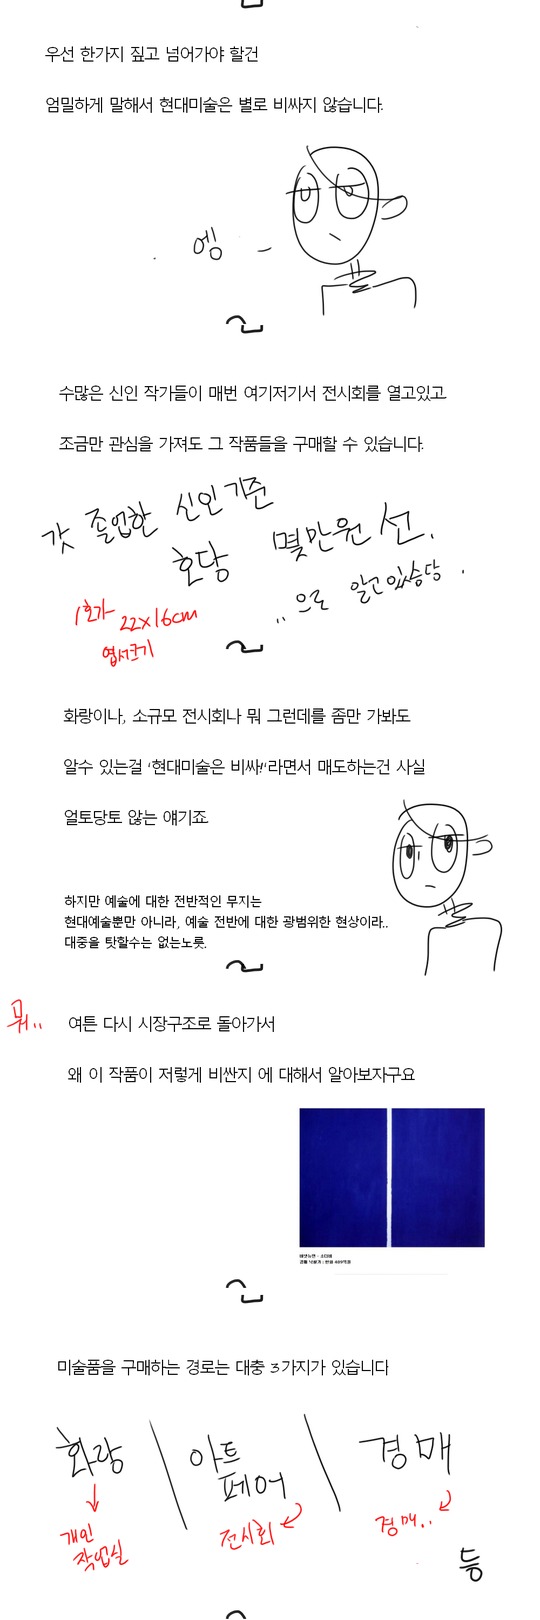 우선 한가지 짚고 넘어가야 할건
엄밀하게 말해서 현대미술은 별로 비싸지 않습니다.
엥
수많은 신인 작가들이 매번 여기저기서 전시회를 열고있고
조금만 관심을 가져도 그 작품들을 구매할 수 있습니다.
갓 졸업한 신인기준
호당 몇만원 선.
..으로 알고있습당.
1호가 22x16cm
엽서크기
화랑이나, 소규모 전시회나 뭐 그런데를 좀만 가봐도
알수 있는걸 '현대미술은 비싸!'라면서 매도하는건 사실
얼토당토 않는 얘기죠
하지만 예술에 대한 전반적인 무지는
현대예술뿐만 아니라, 예술 전반에 대한 광범위한 현상이라..
대중을 탓할수는 없는노릇.
뭐..
여튼 다시 시장구조로 돌아가서
왜 이 작품이 저렇게 비싼지 에 대해서 알아보자구요
미술품을 구매하는 경로는 대충 3가지가 있습니다
화랑 / 아트페어 / 경매
개인
작업실
전시회
경매..
등